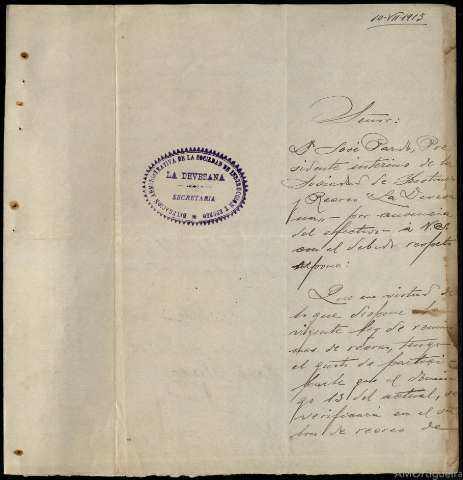 10-VII-1913
Señor:
Dn José Pardo, Pre-
sidente interino de la
Sociedad de Instrucn
y Recreo "La Devesa-
na", - por ausencia
del efectivo - a V. S.
con el debido respeto
expone:
Que en virtud de
lo que dispone la
vigente Ley de reunio-
nes de recreo, tengo
el gusto de partici-
parle que el domin-
go 13 del actual, se
verificará en el
de recreo de
LA DEVESANA
SECRETARIA
DE LA SOCIEDAD DE INSTRUCCION Y RECREO
AMOrtigueira